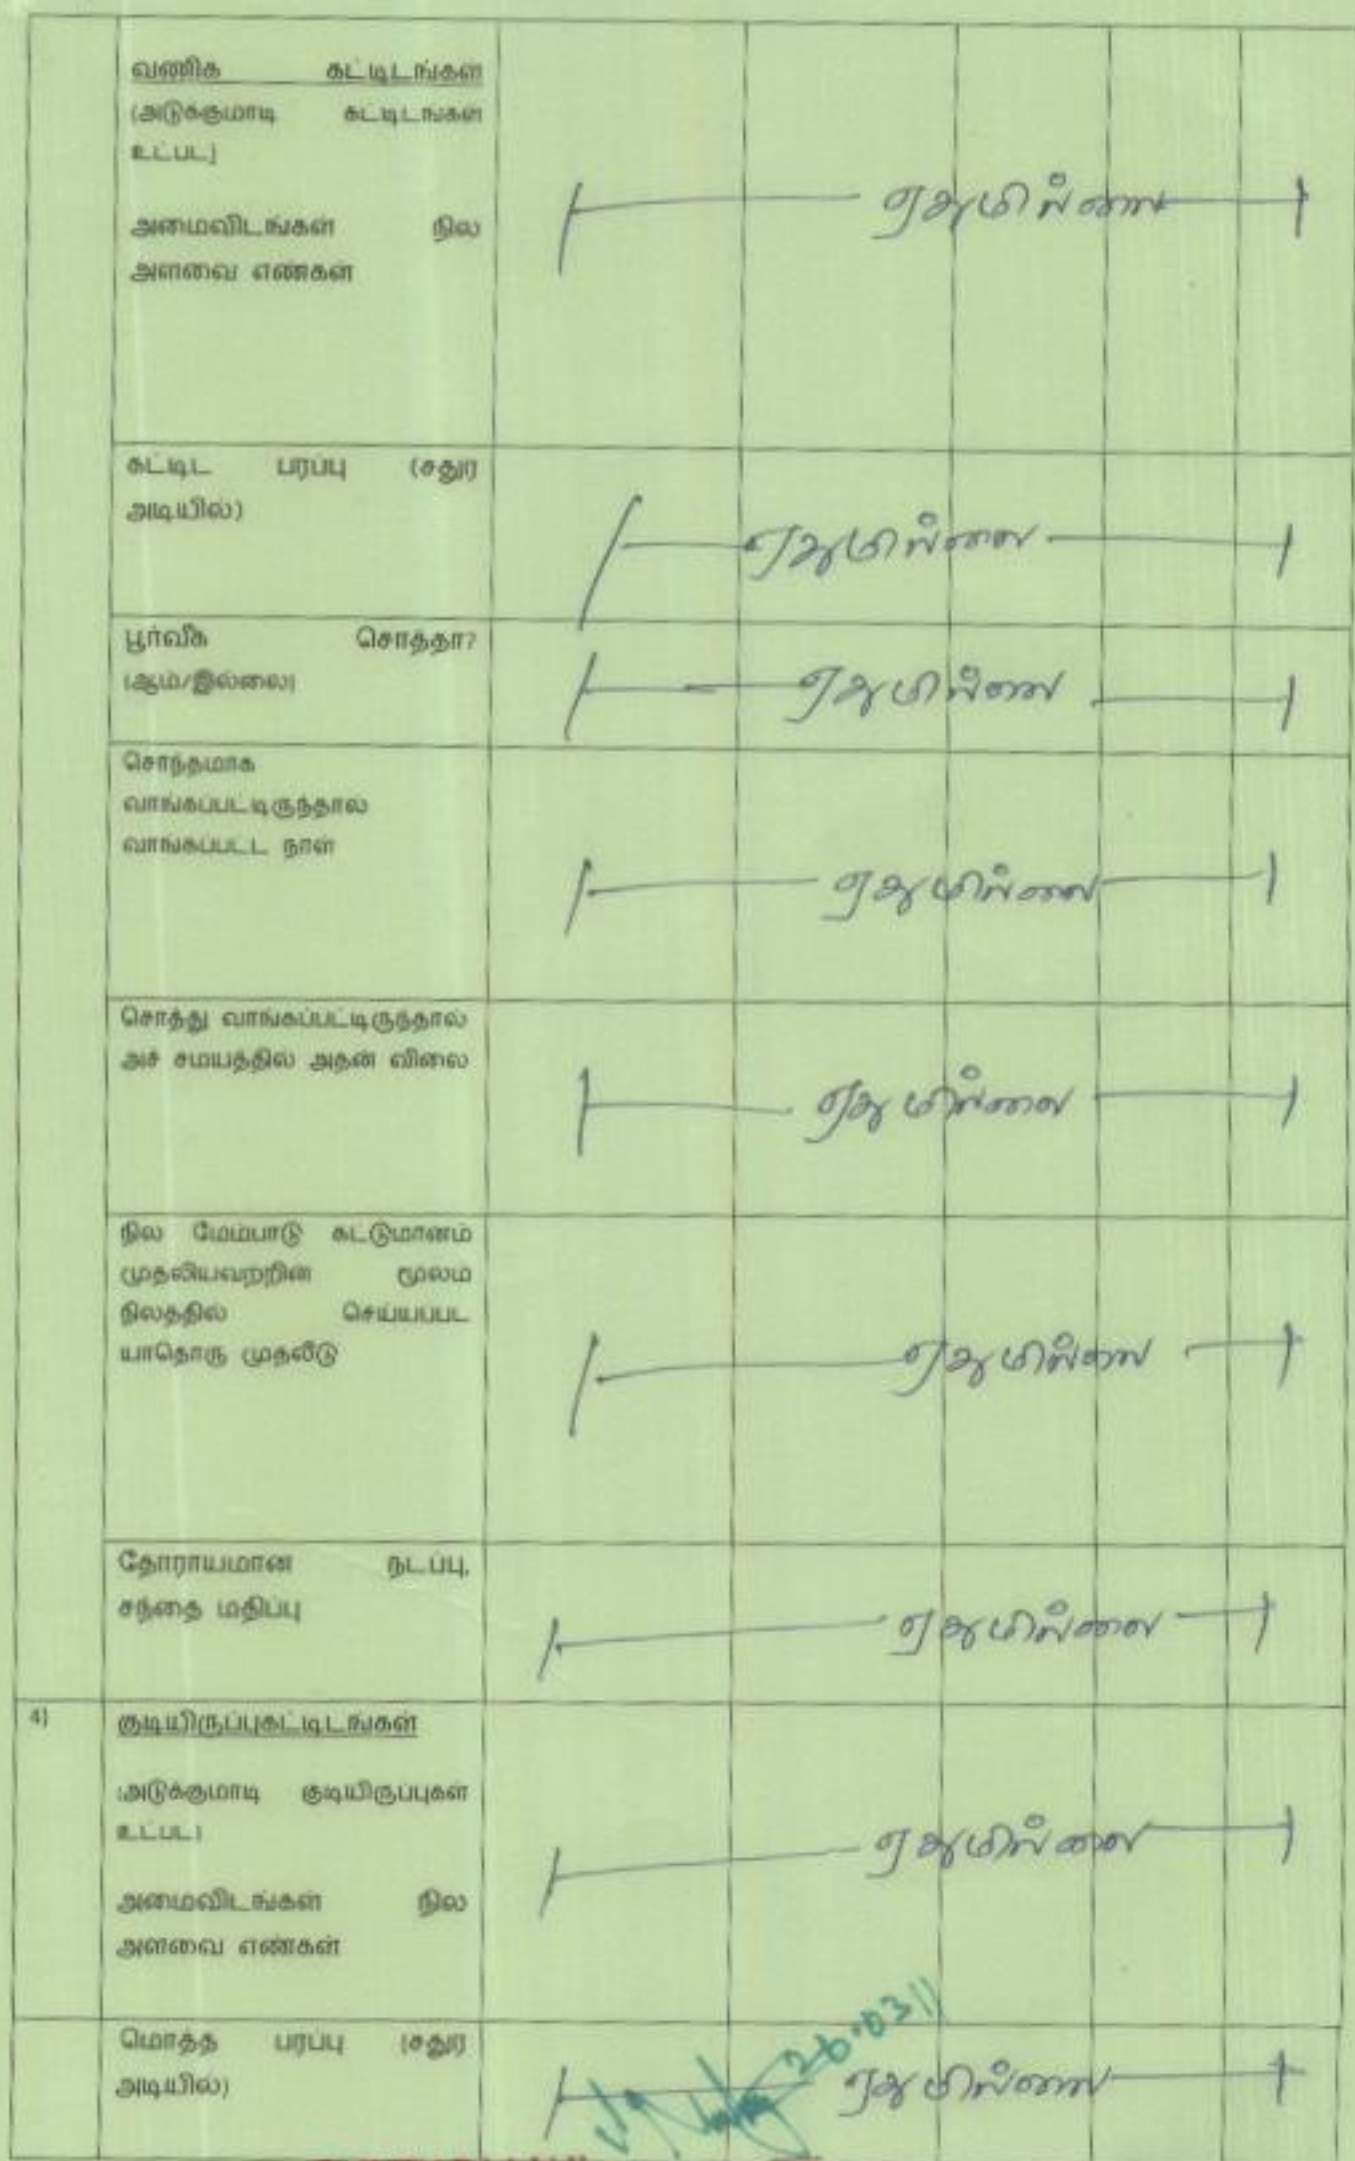 வணிக கட்டிடங்கள்
(அடுக்குமாடி கட்டிடங்கள்
உட்பட)
ஏதுமில்லை
அமைவிடங்கள் நில
அளவை எண்கள்
கட்டிட பரப்பு (சதுர
அடியில்)
ஏதுமில்லை
பூர்வீக சொத்தா?
(ஆம்/இல்லை)
ஏதுமில்லை
சொந்தமாக
வாங்கப்பட்டிருந்தால்
வாங்கப்பட்ட நாள்
ஏதுமில்லை
சொத்து வாங்கப்பட்டிருந்தால்
அச் சமயத்தில் அதன் விலை
ஏதுமில்லை
நில மேம்பாடு கட்டுமானம்
முதலியவற்றின் மூலம்
நிலத்தில் செய்யப்பட
யாதொரு முதலீடு
ஏதுமில்லை
தோராயமான நடப்பு,
சந்தை மதிப்பு
ஏதுமில்லை
4) குடியிருப்புகட்டிடங்கள்
(அடுக்குமாடி குடியிருப்புகள்
உட்பட)
ஏதுமில்லை
அமைவிடங்கள் நில
அளவை எண்கள்
26.03.11
மொத்த பரப்பு (சதுர
அடியில்)
ஏதுமில்லை